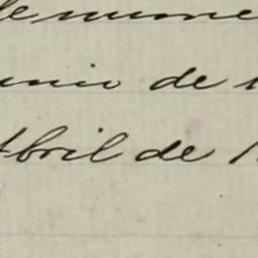 de nume
unio de 1
Abril de 1